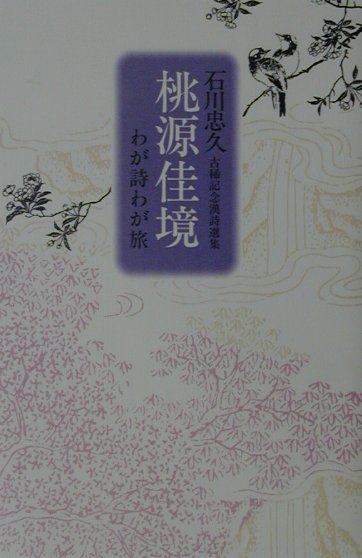 石川忠久 古稀記念漢詩選集
桃源佳境
わが詩わが旅